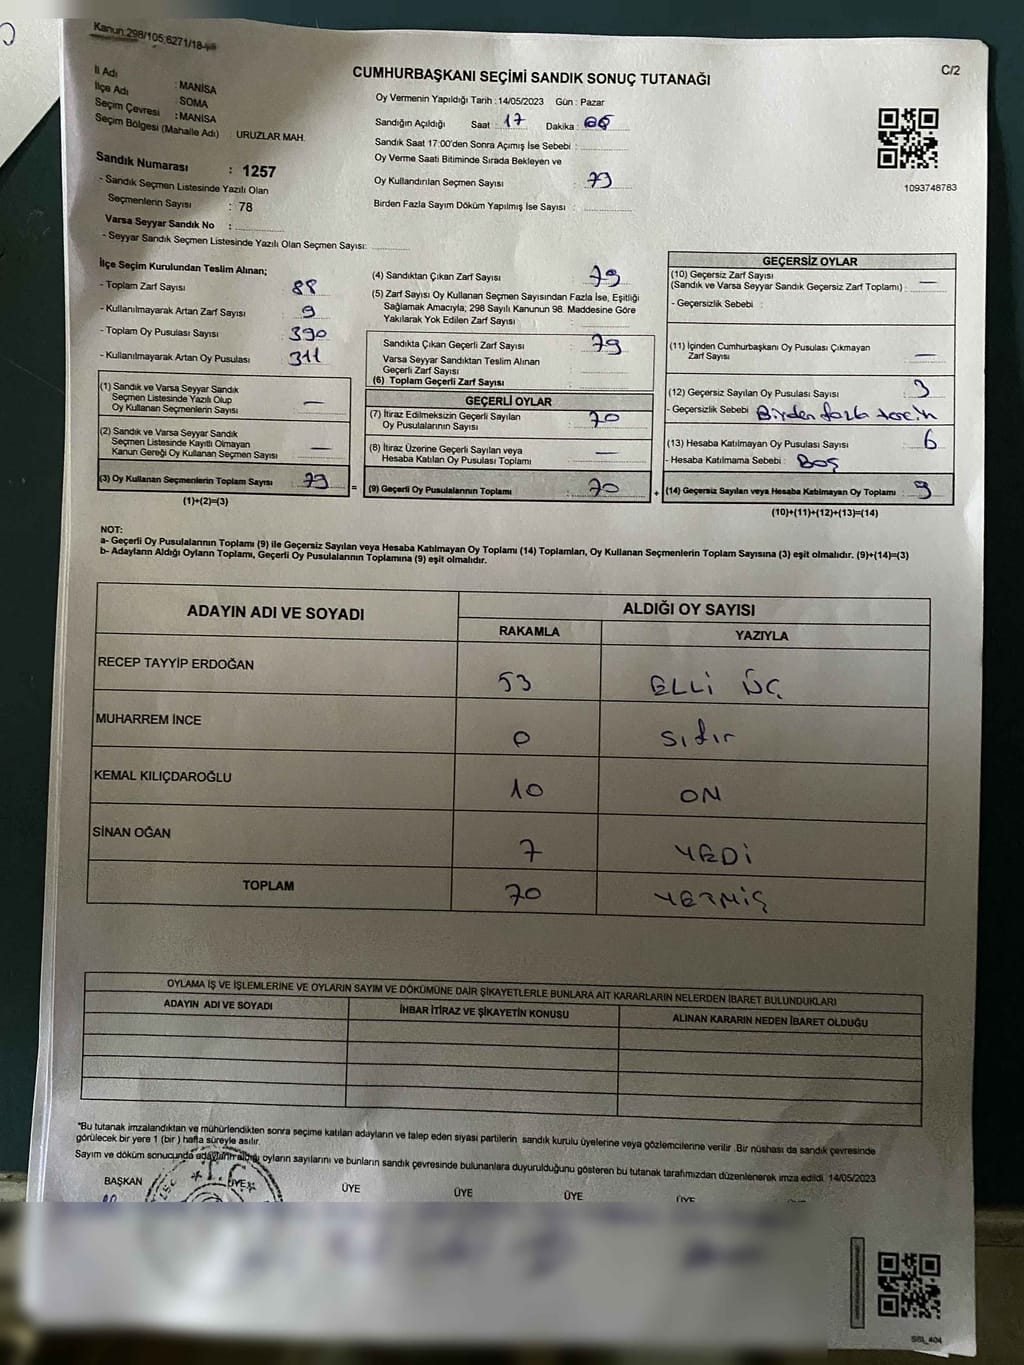 Kanun:298/105;6271/18-
C/2
CUMHURBAŞKANI SEÇİMİ SANDIK SONUÇ TUTANAĞI
İl Adı : MANİSA
İlçe Adı : SOMA
Seçim Çevresi : MANİSA
Seçim Bölgesi (Mahalle Adı) : URUZLAR MAH.
Sandık Numarası : 1257
- Sandık Seçmen Listesinde Yazılı Olan
Seçmenlerin Sayısı : 78
Varsa Seyyar Sandık No :
- Seyyar Sandık Seçmen Listesinde Yazılı Olan Seçmen Sayısı:
Oy Vermenin Yapıldığı Tarih : 14/05/2023 Gün : Pazar
Sandığın Açıldığı Saat : 17 Dakika :
Sandık Saat 17:00'den Sonra Açımış İse Sebebi :
Oy Verme Saati Bitiminde Sırada Bekleyen ve
Oy Kullandırılan Seçmen Sayısı : 79
Birden Fazla Sayım Döküm Yapılmış İse Sayısı :
1093748783
İlçe Seçim Kurulundan Teslim Alınan;
- Toplam Zarf Sayısı : 88
- Kullanılmayarak Artan Zarf Sayısı : 9
- Toplam Oy Pusulası Sayısı : 390
- Kullanılmayarak Artan Oy Pusulası : 311
(1) Sandık ve Varsa Seyyar Sandık
Seçmen Listesinde Yazılı Olup
Oy Kullanan Seçmenlerin Sayısı : —
(2) Sandık ve Varsa Seyyar Sandık
Seçmen Listesinde Kayıtlı Olmayan
Kanun Gereği Oy Kullanan Seçmen Sayısı : —
(3) Oy Kullanan Seçmenlerin Toplam Sayısı : 79 =
(1)+(2)=(3)
(4) Sandıktan Çıkan Zarf Sayısı : 79
(5) Zarf Sayısı Oy Kullanan Seçmen Sayısından Fazla İse, Eşitliği
Sağlamak Amacıyla; 298 Sayılı Kanunun 98. Maddesine Göre
Yakılarak Yok Edilen Zarf Sayısı :
Sandıkta Çıkan Geçerli Zarf Sayısı : 79
Varsa Seyyar Sandıktan Teslim Alınan
Geçerli Zarf Sayısı :
(6) Toplam Geçerli Zarf Sayısı :
GEÇERLİ OYLAR
(7) İtiraz Edilmeksizin Geçerli Sayılan
Oy Pusulalarının Sayısı : 70
(8) İtiraz Üzerine Geçerli Sayılan veya
Hesaba Katılan Oy Pusulası Toplamı : —
(9) Geçerli Oy Pusulalarının Toplamı : 70 +
GEÇERSİZ OYLAR
(10) Geçersiz Zarf Sayısı
(Sandık ve Varsa Seyyar Sandık Geçersiz Zarf Toplamı) : —
- Geçersizlik Sebebi :
(11) İçinden Cumhurbaşkanı Oy Pusulası Çıkmayan
Zarf Sayısı : —
(12) Geçersiz Sayılan Oy Pusulası Sayısı : 3
- Geçersizlik Sebebi : Birden fazla tercih
(13) Hesaba Katılmayan Oy Pusulası Sayısı : 6
- Hesaba Katılmama Sebebi : Boş
(14) Geçersiz Sayılan veya Hesaba Katılmayan Oy Toplamı : 9
(10)+(11)+(12)+(13)=(14)
NOT:
a- Geçerli Oy Pusulalarının Toplamı (9) ile Geçersiz Sayılan veya Hesaba Katılmayan Oy Toplamı (14) Toplamları, Oy Kullanan Seçmenlerin Toplam Sayısına (3) eşit olmalıdır. (9)+(14)=(3)
b- Adayların Aldığı Oyların Toplamı, Geçerli Oy Pusulalarının Toplamına (9) eşit olmalıdır.
ADAYIN ADI VE SOYADI ALDIĞI OY SAYISI
RAKAMLA YAZIYLA
RECEP TAYYİP ERDOĞAN 53 ELLİ ÜÇ
MUHARREM İNCE 0 Sıfır
KEMAL KILIÇDAROĞLU 10 ON
SİNAN OĞAN 7 YEDİ
TOPLAM 70 YETMİŞ
OYLAMA İŞ VE İŞLEMLERİNE VE OYLARIN SAYIM VE DÖKÜMÜNE DAİR ŞİKAYETLERLE BUNLARA AİT KARARLARIN NELERDEN İBARET BULUNDUKLARI
ADAYIN ADI VE SOYADI İHBAR İTİRAZ VE ŞİKAYETİN KONUSU ALINAN KARARIN NEDEN İBARET OLDUĞU
"Bu tutanak imzalandıktan ve mühürlendikten sonra seçime katılan adayların ve talep eden siyasi partilerin sandık kurulu üyelerine veya gözlemcilerine verilir. Bir nüshası da sandık çevresinde
görülecek bir yere 1 (bir) hafta süreyle asılır.
Sayım ve döküm sonucunda adayların aldığı oyların sayılarını ve bunların sandık çevresinde bulunanlara duyurulduğunu gösteren bu tutanak tarafımızdan düzenlenerek imza edildi. 14/05/2023
BAŞKAN ÜYE ÜYE ÜYE ÜYE ÜYE
T.C.
SBL_404